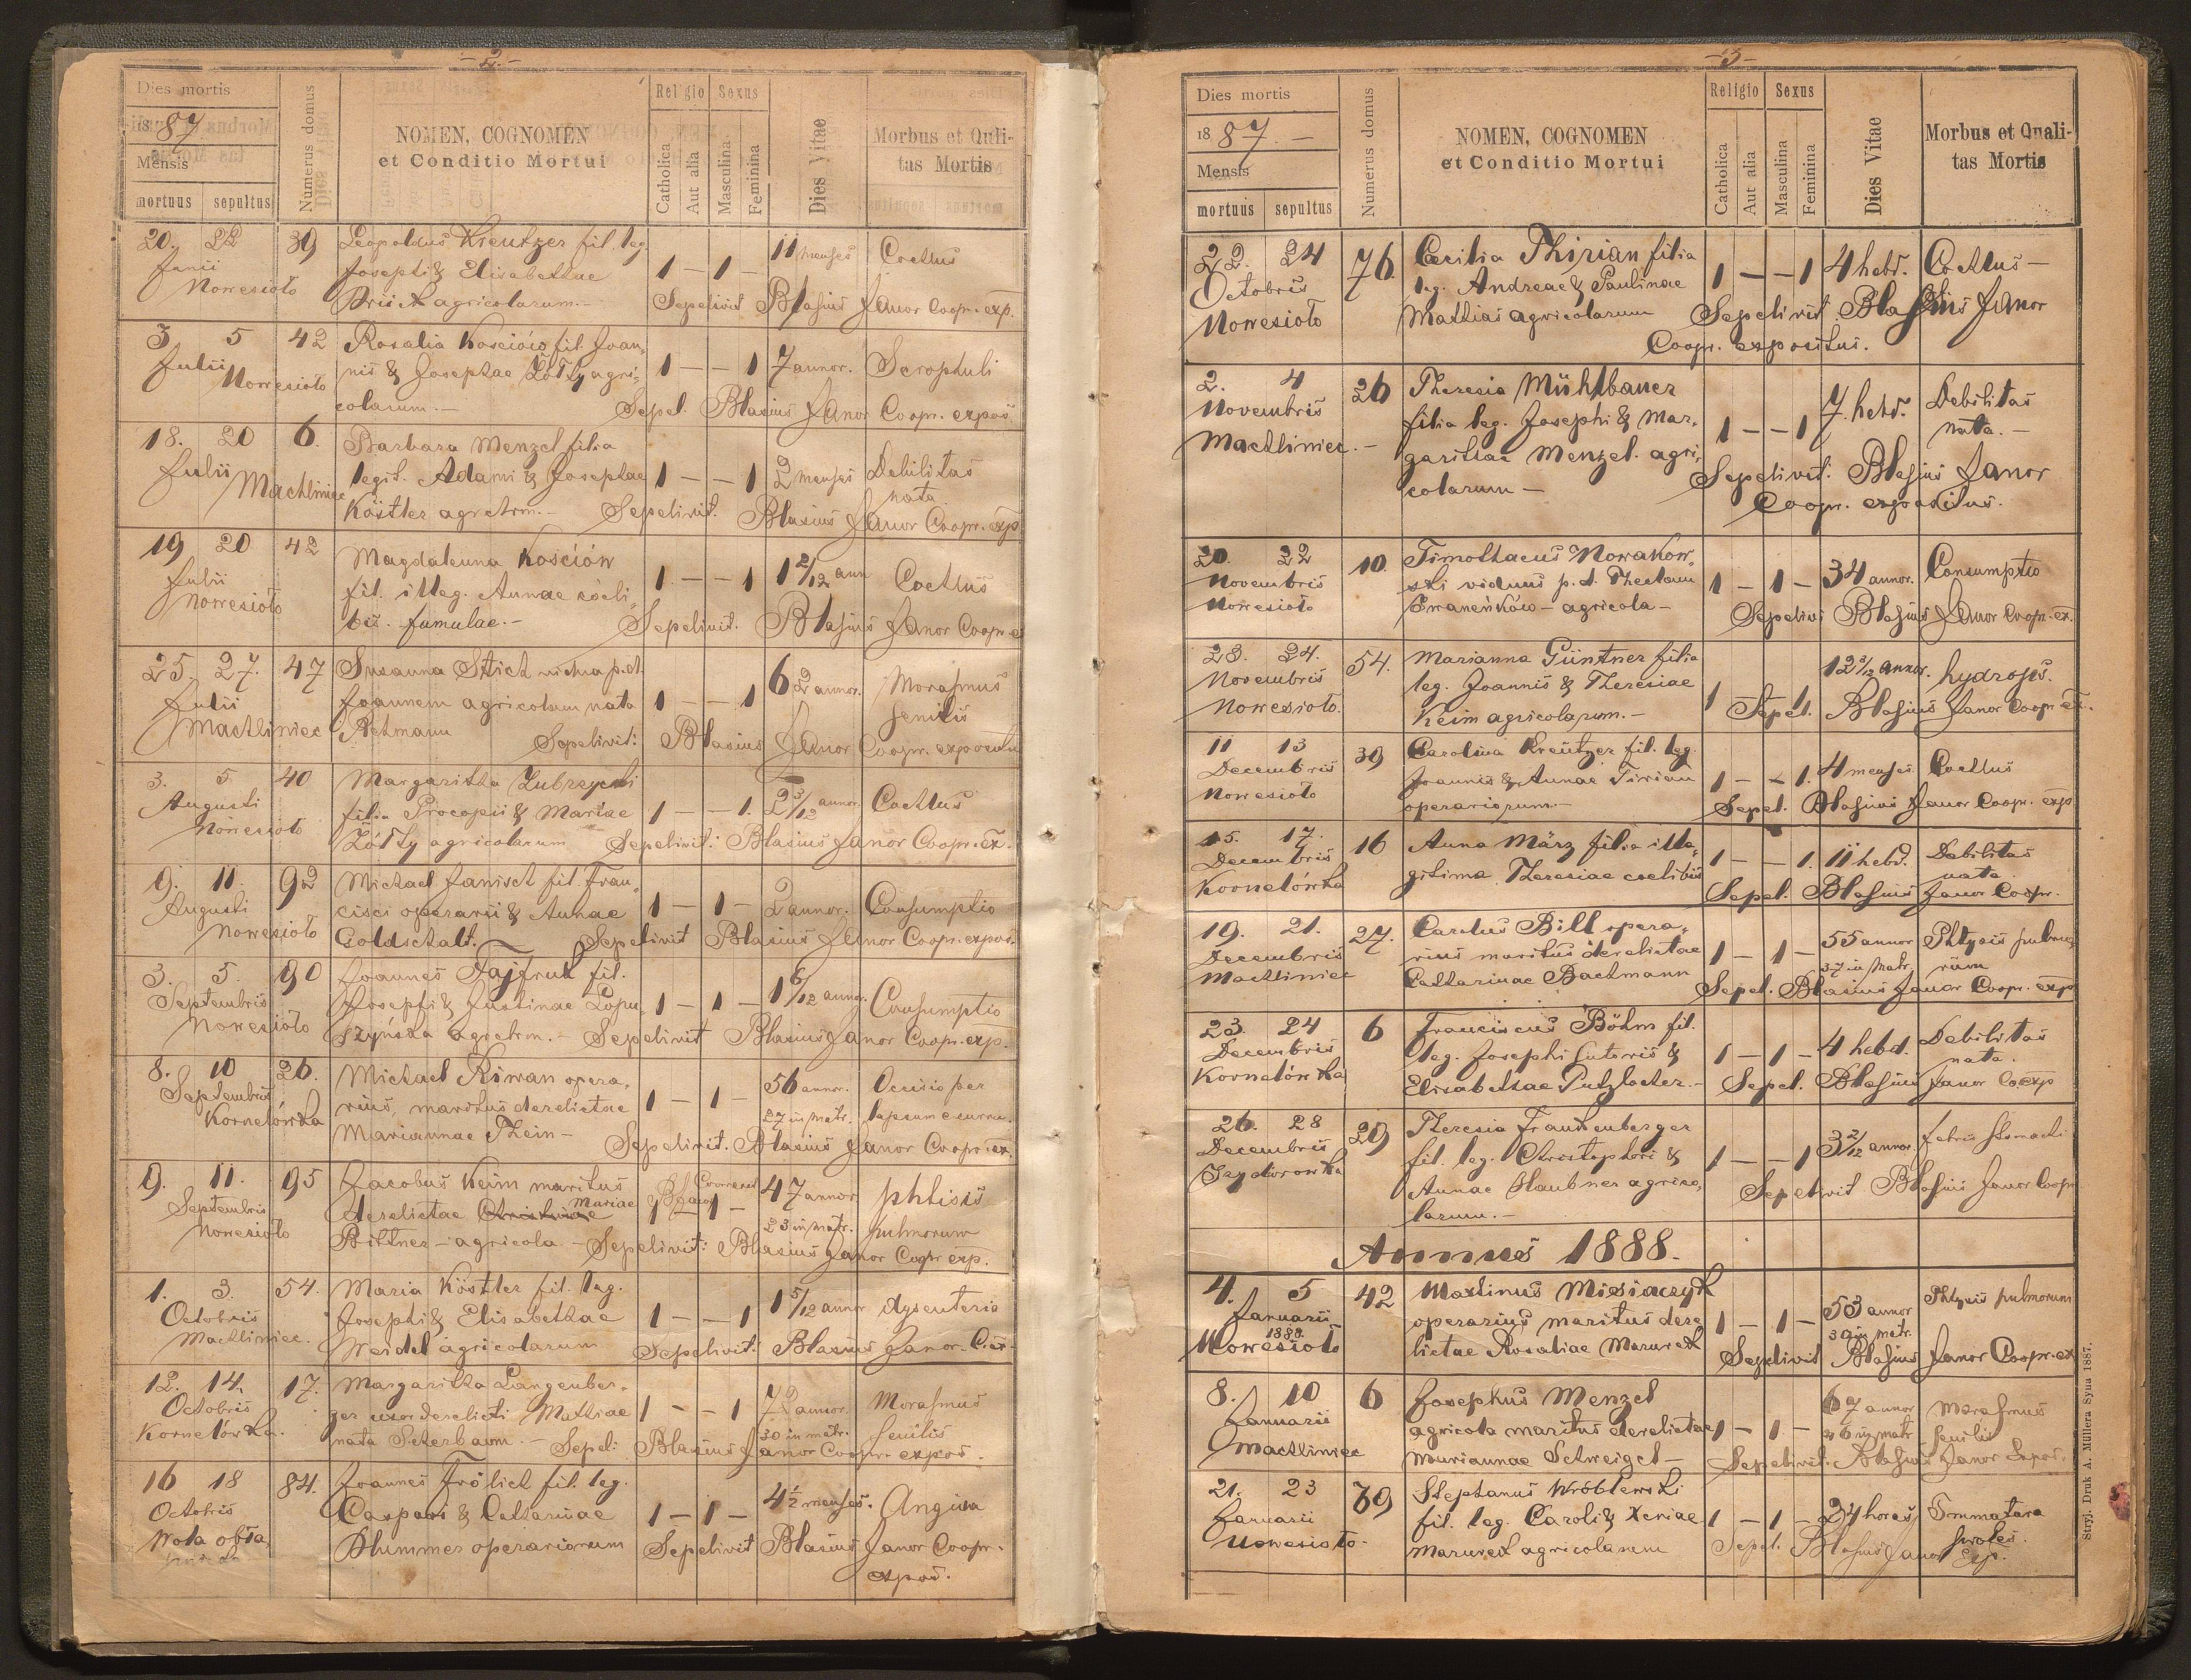 - 2. -
Dies mortis
1887
Mensis
mortuus sepultus
Numerus domus
NOMEN, COGNOMEN
et Conditio Mortui
Religio Sexus
Catholica
Aut alia
Masculina
Feminina
Dies Vitae
Morbus et Quli-
tas Mortis
20. 22 39 Leopoldus Kreutzer fil. leg. 11 menses Coetus
Junii Josephi & Elisabethae 1 - 1 -
Nowesioło agricolarum.- Sepelivit Blasius Janor Coopr. exp.
3 5 42 Rosalia Kościów fil. Joan-
Julii nis & Josephae Żółty agri- 1 - - 1 7 annor. Scrophuli
Nowesioło colarum.- Sepel. Blasius Janor Coopr. expos.
18. 20 6. Barbara Menzel filia
Julii legit. Adami & Josephae 1 - - 1 2 menses Debilitas
Machliniec Köstler agrclrm.- nata
Sepelivit. Blasius Janor Coopr. exp.
19 20 42 Magdalenna Kościów 1 2/12 ann
Julii fil. illeg. Annae coeli- 1 - - 1 Coetus
Nowesioło bis. famulae.- Sepelivit. Blasius Janor Coopr. e
25. 27. 47 Susanna Stich vidua p. d. 62 annor. Morasmus
Julii Joannem agricolam nata 1 - - 1 senilis
Machliniec Retmann Sepelivit: Blasius Janor Coopr.
3. 5. 40 Margaritha Zubrzycki 2 3/12 annor. Coetus
Augusti filia Procopii & Mariae 1 - 1.
Nowesioło Żółty agricolarum Sepelivit: Blasius Janor Coopr. ex.
9. 11. 92 Michael Janisch fil. Fran-
Augusti cisci operarii & Annae 1 - 1 - 2 annor. Consumptio
Nowesioło Goldschalt. Sepelivit Blasius Janor Coopr. expos.
3. 5. 90 Joannes Fajfruk fil.
Septembris Josephi & Justinae Łopu- 1 - 1 - 1 6/12 anno. Consumptio
Nowesioło szyńska agrclrm.- Sepelivit Blasius Janor Coopr. exp.
8. 10 26. Michael Kirwan opera- 56 annor. Occisio per
Septembris rius, maritus derelictae 1 - 1 - 27 in matr. lapsum e curru.
Kornelówka Mariannae Thein - Sepelivit. Blasius Janor Coopr. ex.
9. 11. 95 Jacobus Keim maritus 47 annor phtisis
Septembris derelictae Mariae 1 - 1 - 23 in matr. pulmorum
Nowesioło Bittner - agricola - Sepelivit: Blasius Janor Coopr exp.
1. 3. 54. Maria Köstler fil. leg.
Octobris Josephi & Elisabethae 1 - - 1 1 5/12 annor dysenteria
Machliniec. Weidel agricolarum Sepelivit: Blasius Janor C. ex.
12. 14. 17. Margaritha Langenber-
Octobris ger uxor derelicti Mathiae 1 - - 1 72 annor. Morasmus
Kornelówka. nata - Sepel: 30 in matr. senilis
Blasius Janor Coopr. expos.
16 18 84. Joannes Frölich fil. leg.
Octobris Caspari & Catharinae 1 - 1 - 4 1/2 menses. Angina
Wola obła- Plummer operariorum Sepelivit Blasius Janor Coopr.
expos.
- 3 -
Dies mortis
1887. -
Mensis
mortuus sepultus
Numerus domus
NOMEN, COGNOMEN
et Conditio Mortui
Religio Sexus
Catholica
Aut alia
Masculina
Feminina
Dies Vitae
Morbus et Quali-
tas Mortis
22. 24 76. Cecilia Thirian filia
Octobris leg. Andreae & Paulinae 1 - - 1 4 hebd. Coetus -
Nowesioło Mathias agricolarum Sepelivit. Blasius Janor
Coopr. expositus.
2. 4 26 Theresia Mühlbauer
Novembris filia leg. Josephi & Mar- 7. hebd. Debilitas
Machliniec. - garithae Menzel. agri- 1 - - 1 nata. -
colarum - Sepelivit: Blasius Janor
Coopr. expositus.
20. 22 10. Timothaeus Nowakow-
Novembris ski viduus p. d. Theclam 1 - 1 - 34 annor. Consumptio
Nowesioło Iwaneńków - agricola - Sepelivi Blasius Janor Coopr. ex.
23. 24. 54. Marianna Güntner filia 12 3/12 annor. hydrops.
Novembris leg. Joannis & Theresiae 1
Nowesioło. Keim agricolarum. - Sepel. Blasius Janor Coopr ex.
11 13 39 Carolina Kreutzer fil. leg.
Decembris Joannis & Annae Tirian 1 - - 1. 4 menses Coetus
Nowesioło operariorum.- Sepel. Blasius Janor Coopr. exp
15. 17. 16 Anna März filia ille-
Decembris gitima Theresiae coelibis 1 - - 1. 11 hebd. Debilitas
Kornelówka nata
Sepel. Blasius Janor Coopr.
19. 21. 27. Carolus Bill opera- 55 annor Phtysis pulmo-
Decembris rius maritus derelictae 1 - 1 - 37 in matr. rum
Machliniec Catharinae Bachmann Sepel. Blasius Janor Coopr. exp
23. 24 6 Franciscus Böhm fil.
Decembris leg. Josephi sutoris & 1 - 1 - 4 hebd. Debilitas
Kornelówka Elisabethae Putzlocher. - nata.
Sepel. Blasius Janor Co exp
26. 28 29 Theresia Frankenberger
Decembris fil. leg. Christophori & 1 - - 1 3 2/12 annor. febris stomachi
Izydorówka Annae Haubner agrico- Sepelivit Blasius Janor Coopr
larum. -
Annus 1888.
4. 5 42 Martinus Miesiaczyk
Januarii operarius maritus dere- 1 - 1 - 53 annor Phtysis pulmorum
1888. 30 in matr.
Nowesioło lictae Rosaliae Mazurek Sepelivit Blasius Janor Coopr. ex
8. 10 6 Josephus Menzel 67 annor Morasmus
Januarii agricola maritus derelictae 1 - 1 - in matr senilis
Machliniec Mariannae Schweigel - Sepelivit: Blasius Janor Expos.
21. 23 Stephanus Wróblewski
Januarii fil. leg. Caroli & Xeniae 1 - 1 - 24 horas Immatura
Nowesioło. Mazurek agricolarum proles.
Sepel. Blasius Janor Exp.
Stryj. Druk A. Müllera Syna 1887.